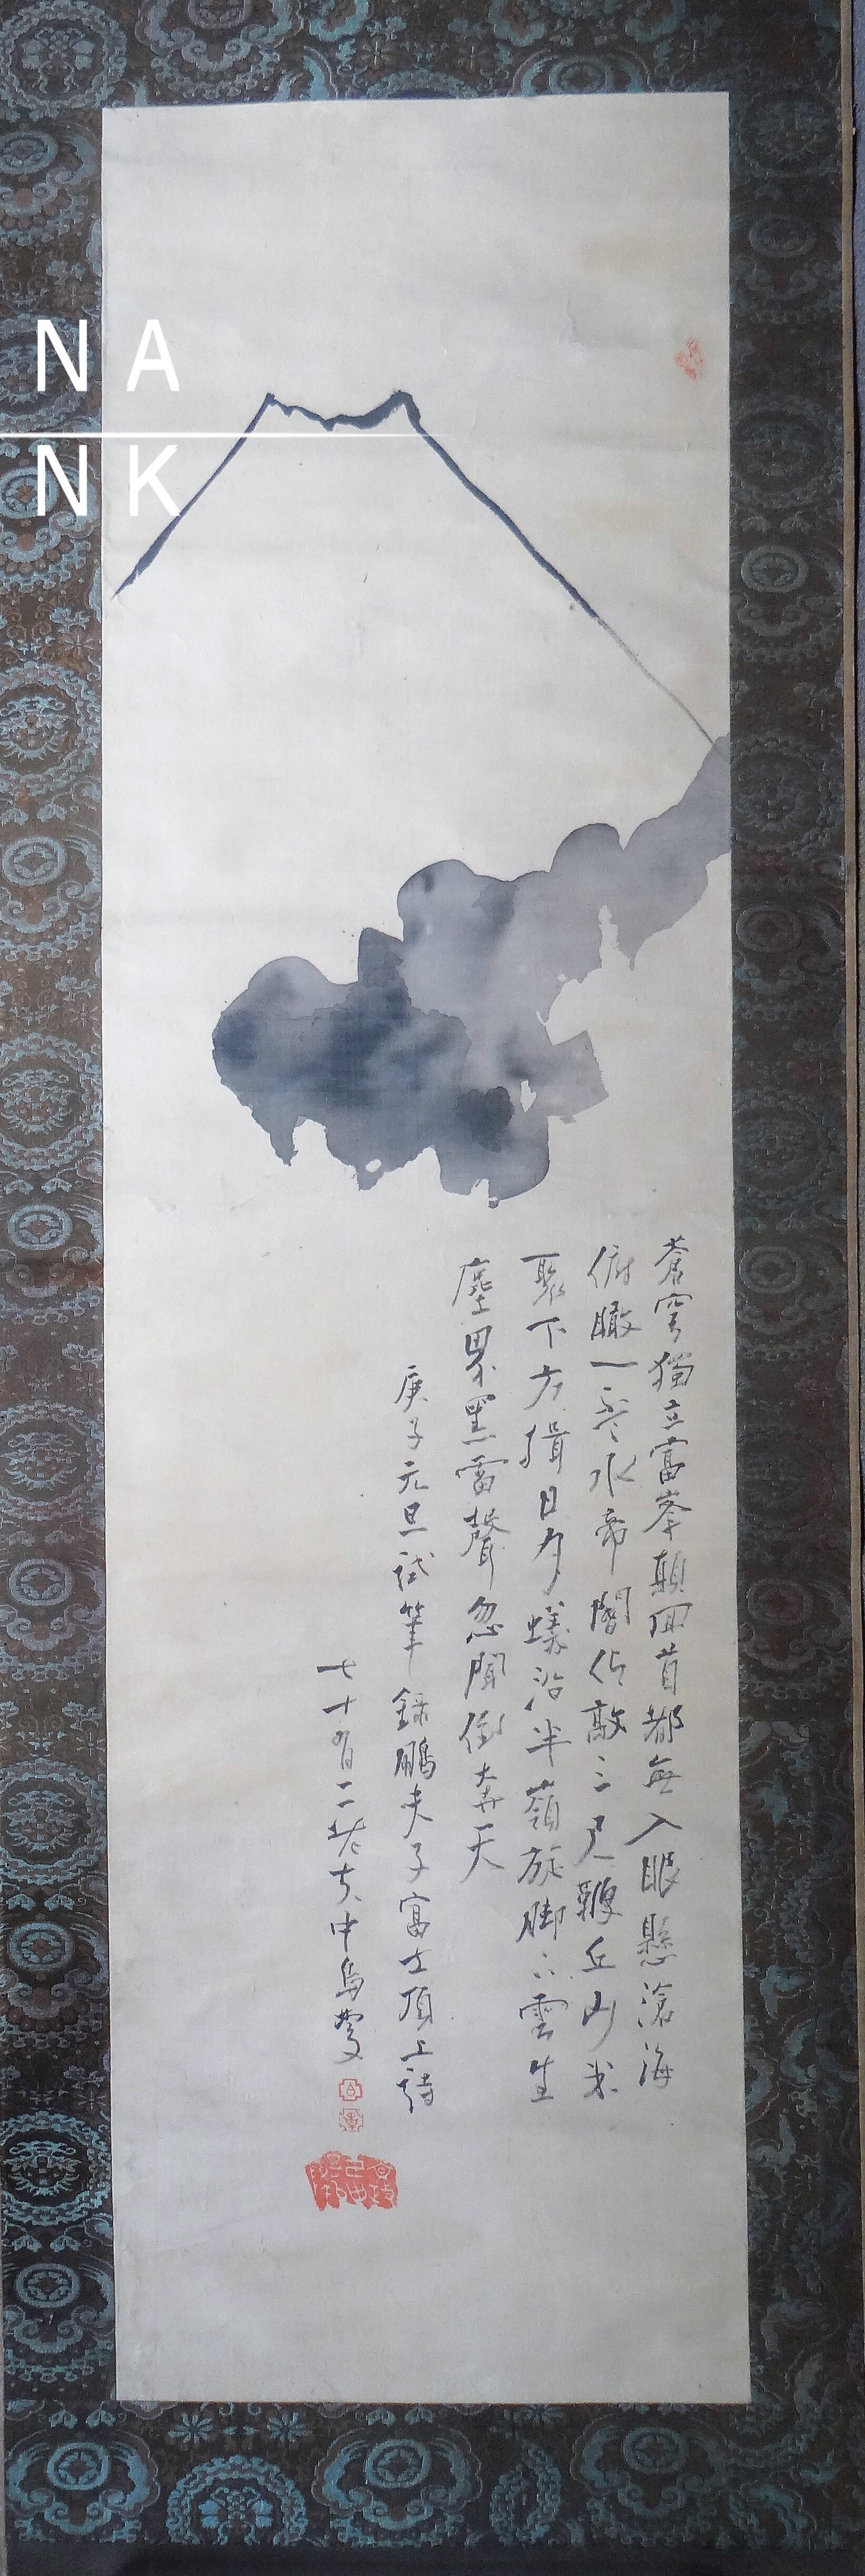 NA
NK
蒼穹獨立富峯顛回首都無入眼懸滄海
俯瞰一盃水帝閽佇敲三尺鞭丘山米
聚下方揖日夕蟻沿半嶺旋脚下雲生
塵界黑雷聲忽聞倒奔天
庚子元旦試筆錄鵬夫子富士頂上詩
七十有二老